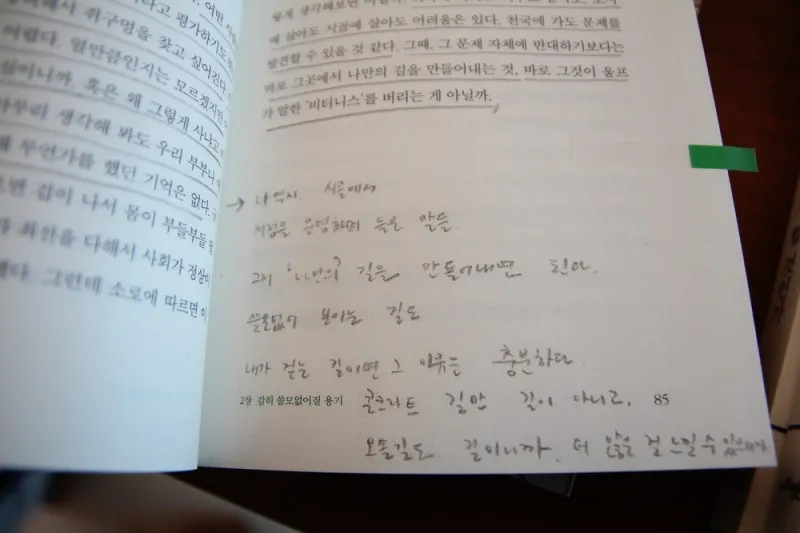 해서 쥐구멍을 찾고 싶어진다.
어렵다. 얼만큼인지는 모르겠지만
싫어니까. 혹은 왜 그렇게 사냐고
아무리 생각해 봐도 우리 부부나
무언가를 했던 기억은 없다.
겁이 나서 몸이 부들부들
최선을 다해서 사회가 정상이
그런데 소로에 따르면 이
에 살아도 시골에 살아도 어려움은 있다. 천국에 가도 문제를
발견할 수 있을 것 같다. 그때, 그 문제 자체에 반대하기보다는
바로 그곳에서 나만의 길을 만들어내는 것, 바로 그것이 울프
가 말한 '비터니스'를 버리는 게 아닐까.
→ 나 역시, 시골에서
서점을 운영하며 늘을 알들.
그저 '나만의' 길을 만들어내면 된다.
쓸모없어 보이는 길도
내가 걷는 길이면 그 이유는 충분하다.
콘크리트 길만 길이 아니고,
오솔길도 길이니까. 더 많은 걸 느낄 수 있
2장 감히 쓸모없어질 용기
85